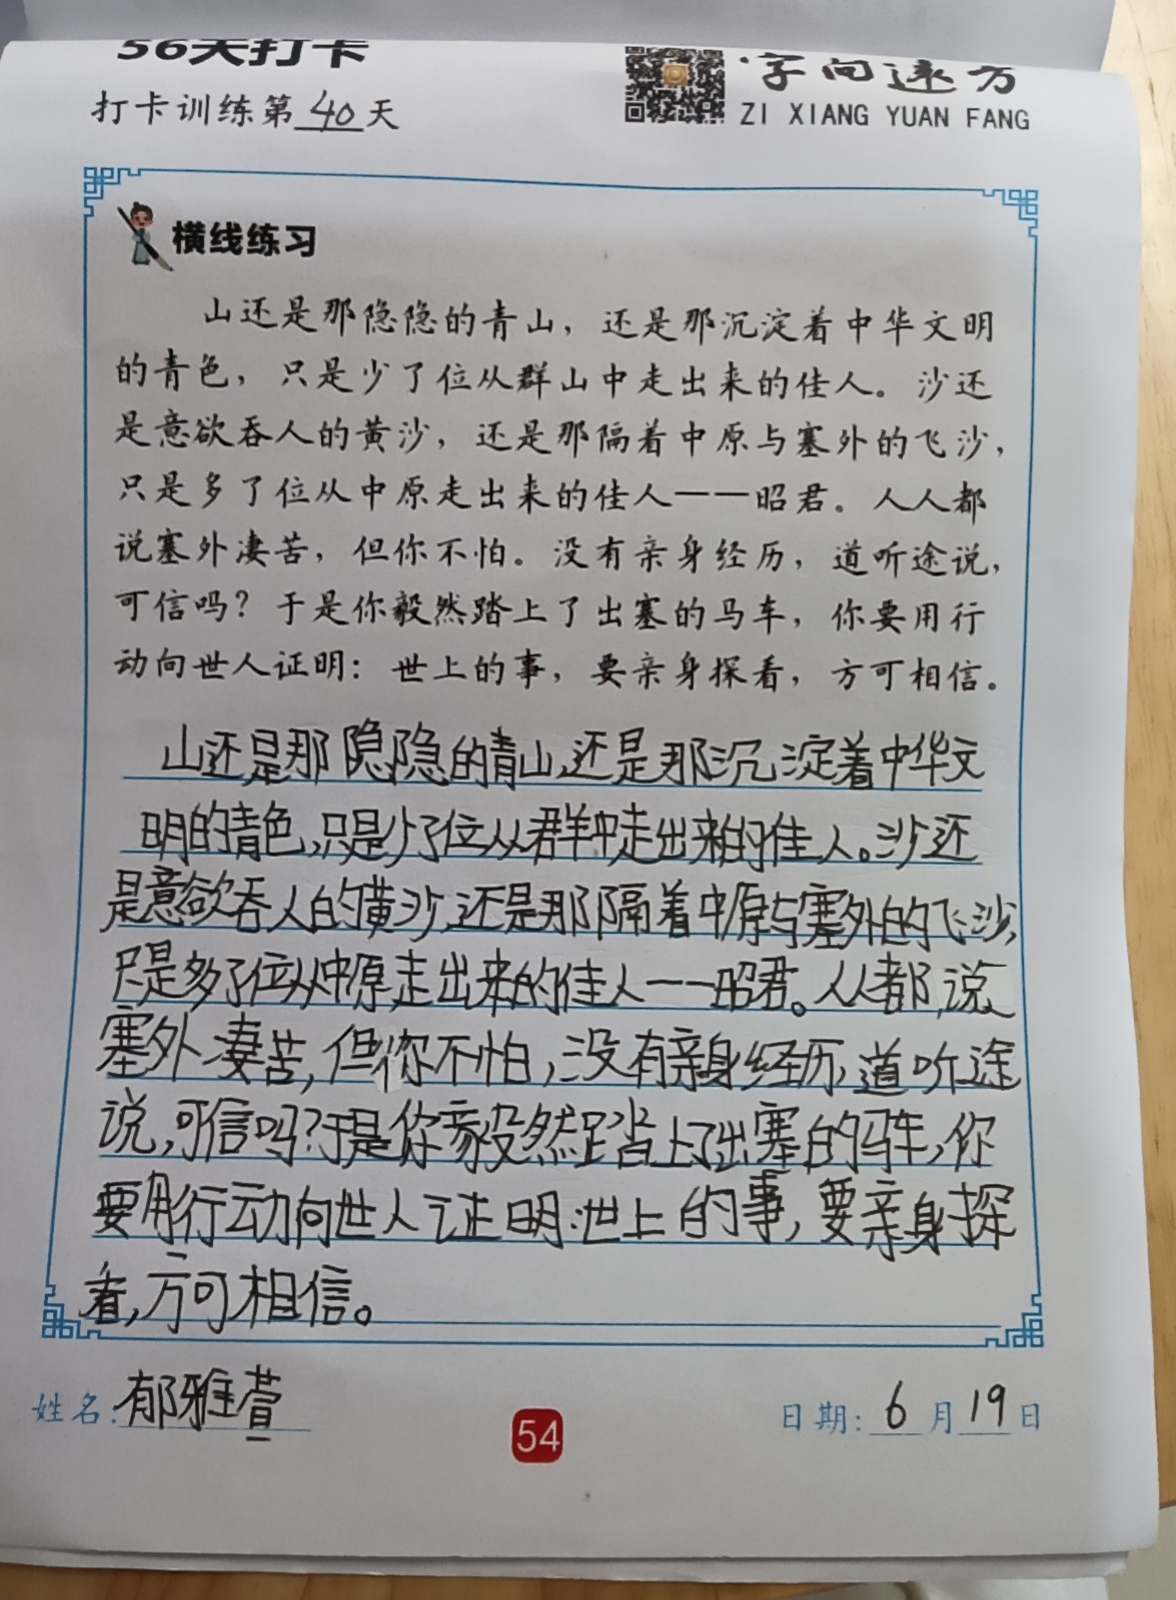 56天打卡
字向远方
打卡训练第40天
ZI XIANG YUAN FANG
横线练习
山还是那隐隐的青山，还是那沉淀着中华文明
的青色，只是少了位从群山中走出来的佳人。沙还
是意欲吞人的黄沙，还是那隔着中原与塞外的飞沙，
只是多了位从中原走出来的佳人——昭君。人人都
说塞外凄苦，但你不怕。没有亲身经历，道听途说，
可信吗？于是你毅然踏上了出塞的马车，你要用行
动向世人证明：世上的事，要亲身探看，方可相信。
山还是那隐隐的青山,还是那沉淀着中华文
明的青色,只是少了位从群中走出来的佳人。沙还
是意欲吞人的黄沙,还是那隔着中原与塞外的飞沙,
只是多了位从中原走出来的佳人一一昭君。人人都说
塞外凄苦,但你不怕,没有亲身经历,道听途
说,可信吗?于是你毅然踏上了出塞的马车,你
要用行动向世人证明:世上的事,要亲身探
看,方可相信。
姓名:郁雅萱
54
日期:6月19日